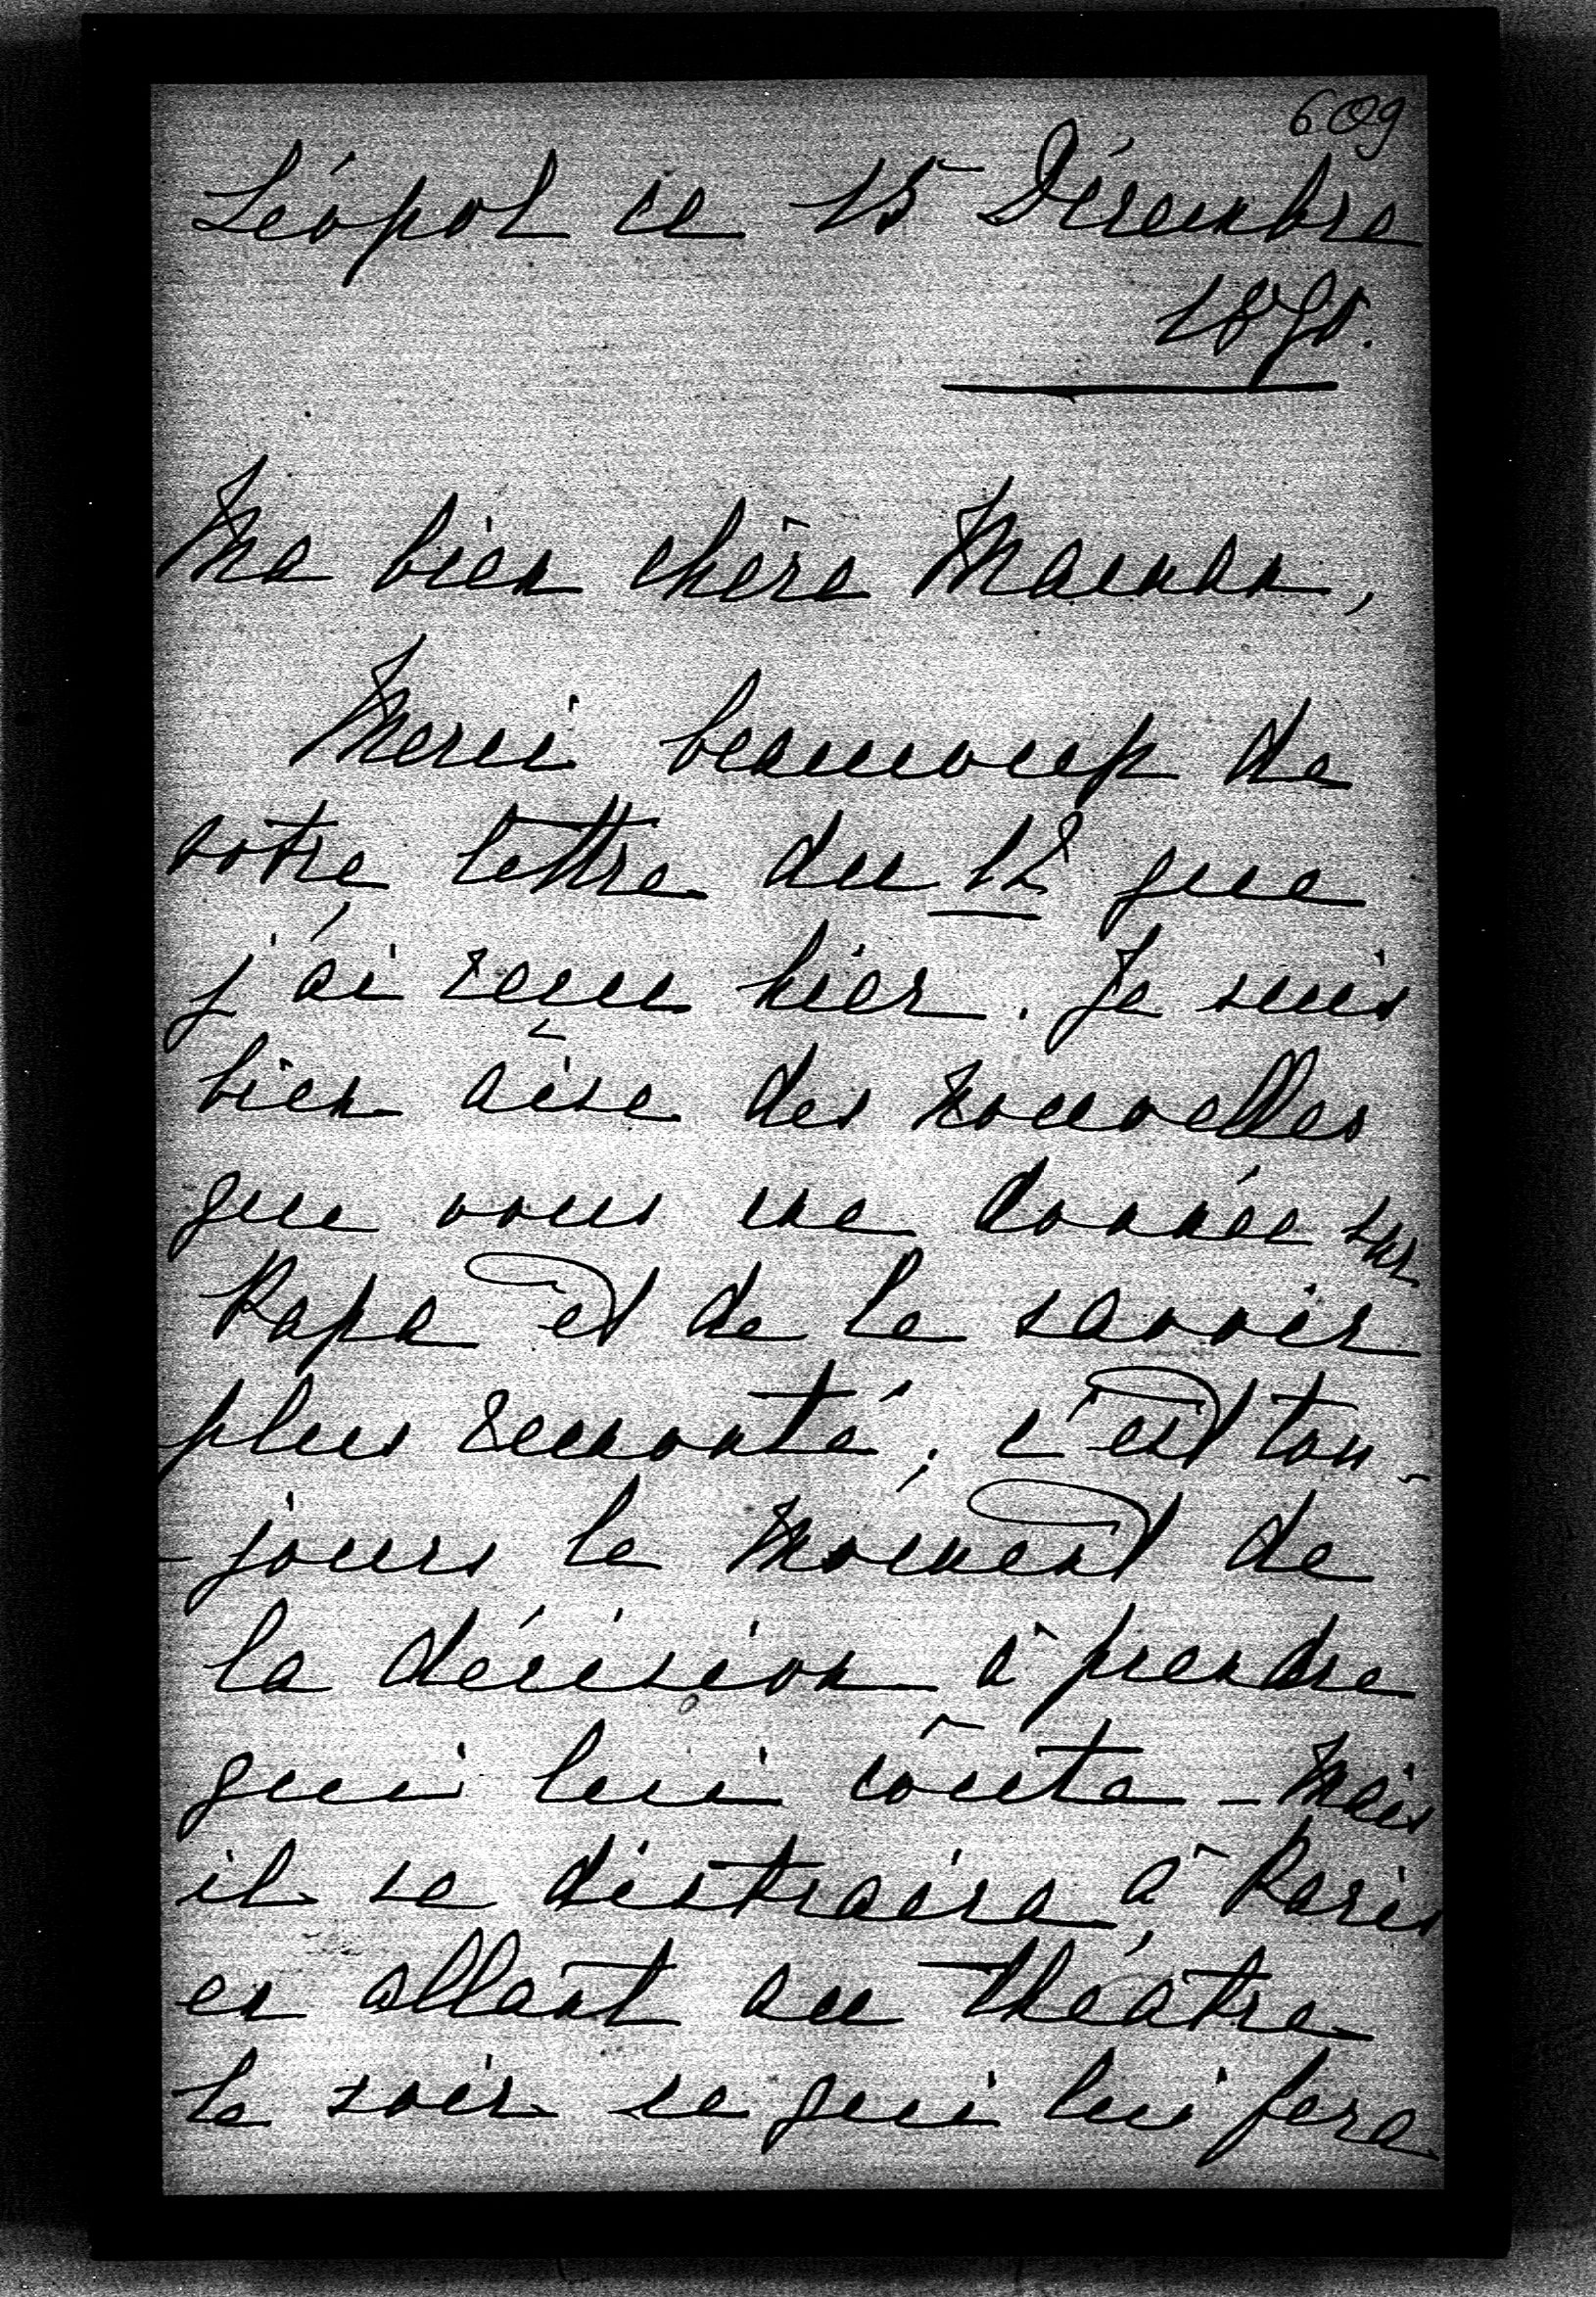 609
Léopol ce 15 Décembre
1890.
Ma bien chère Maman,
Merci beaucoup de
votre lettre du 12 que
j'ai reçue hier. Je suis
bien aise des nouvelles
que vous me donnée sur
Papa et de le savoir
plus remonté; c'est tou-
-jours le moment de
la décision à prendre
qui lui coûte - Mais
il se distraira à Paris
en allant au théâtre
le soir ce qui lui fera